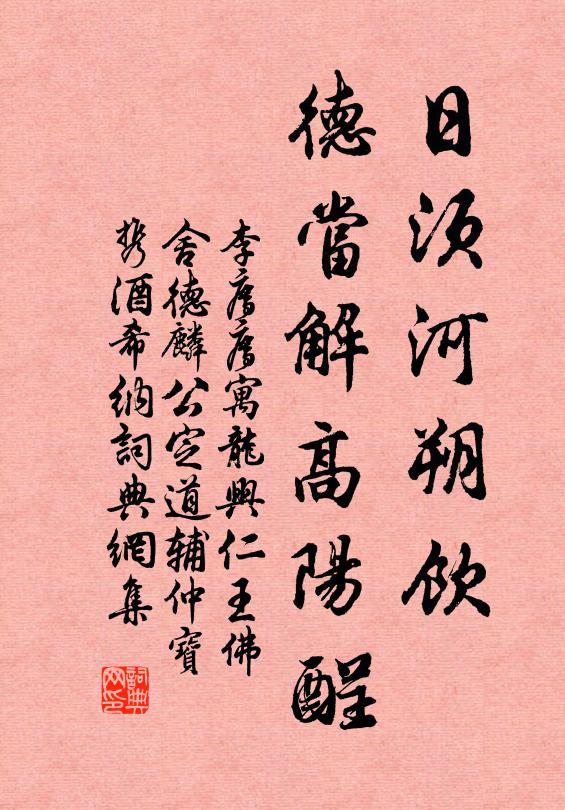 日須河朔飲
德當解高陽酲
李廌廌寓龍興仁王佛
舍德麟公定道輔仲寶
携酒希納詞典網集
詞典网印